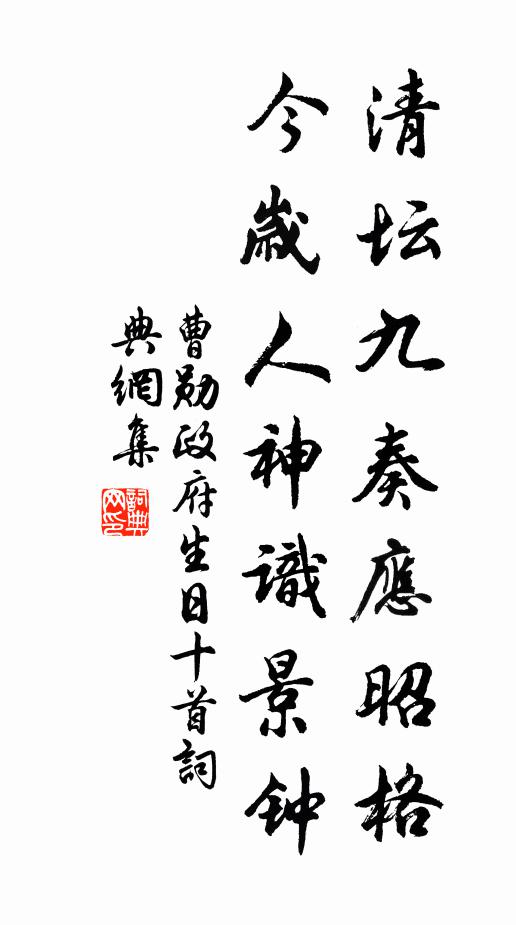 清坛九奏應昭格
今歲人神識景钟
曹勋政府生日十首詞
典網集
詞典网印